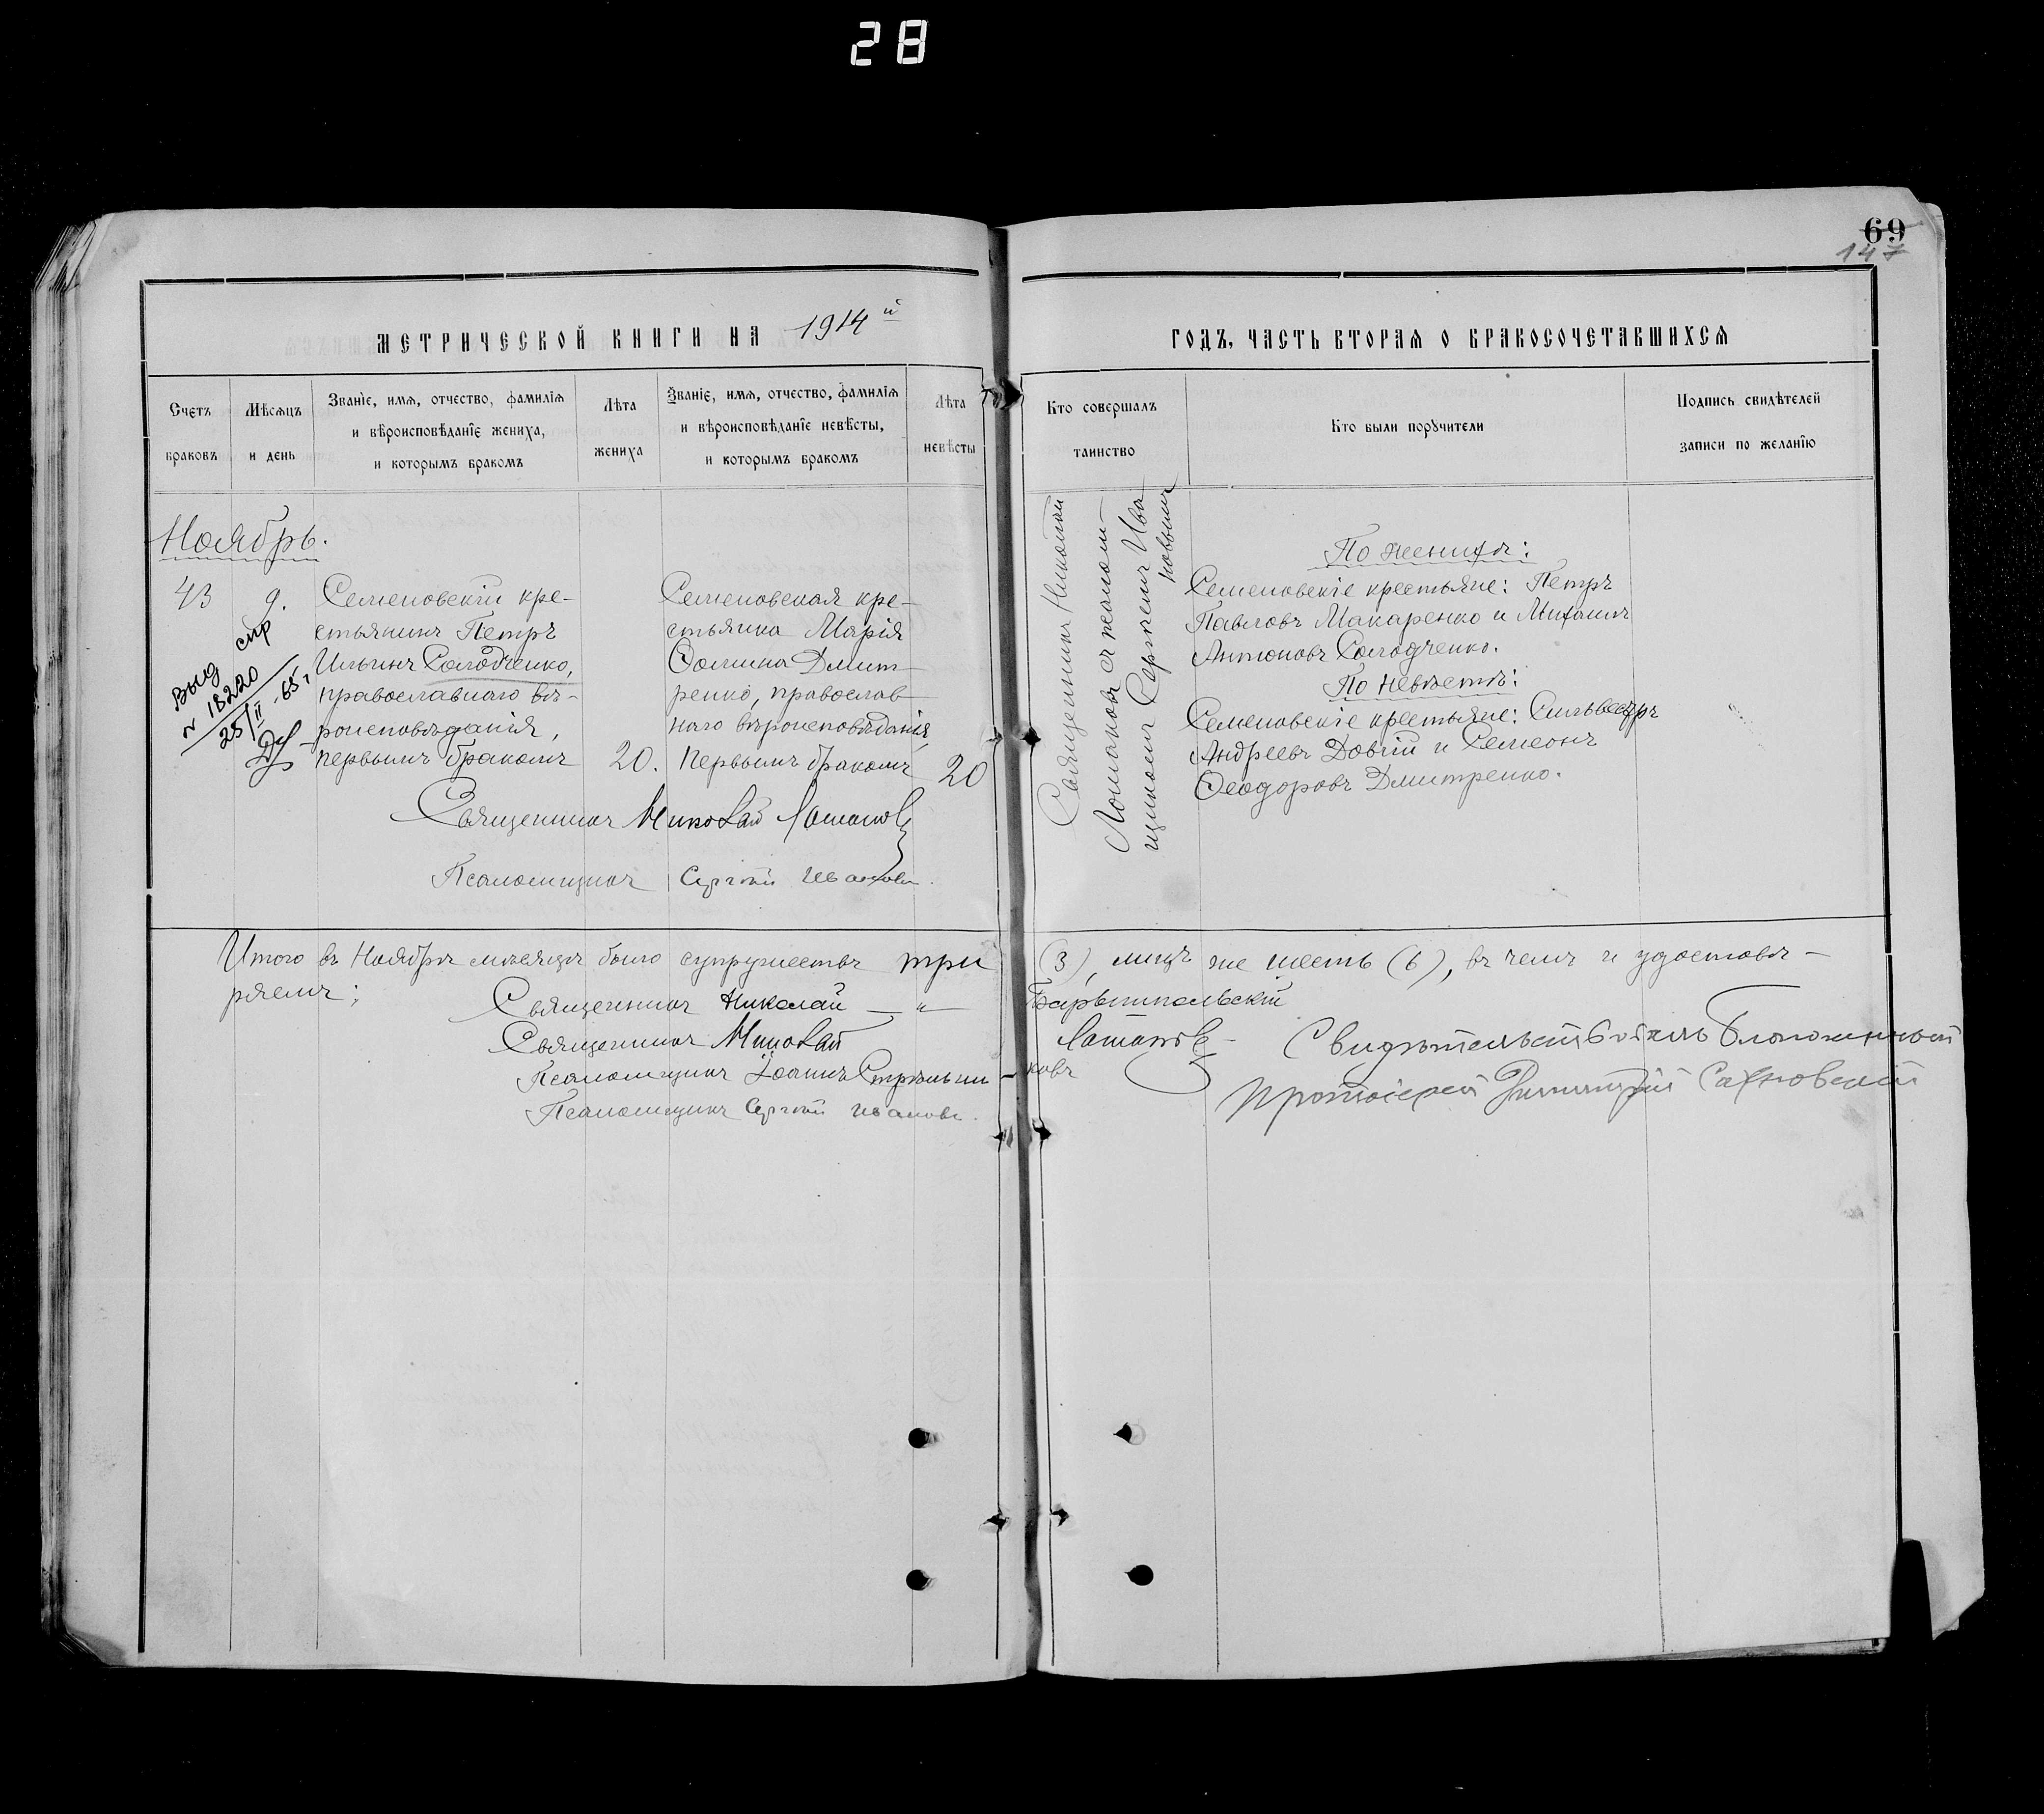 28
69
147
МЕТРИЧЕСКОЙ КНИГИ НА 1914й
ГОДЪ, ЧАСТЬ ВТОРАЯ О БРАКОСОЧЕТАВШИХСЯ
Счетъ браковъ
Мѣсяцъ и день
Званіе, имя, отчество, фамилія
и вѣроисповѣданіе жениха,
и которымъ бракомъ
Лѣта жениха
Званіе, имя, отчество, фамилія
и вѣроисповѣданіе невѣсты,
и которымъ бракомъ
Лѣта невѣсты
Кто совершалъ таинство
Кто были поручители
Подпись свидѣтелей
записи по желанію
Ноябрь.
43
9.
Выд спр
N 18220
25/II-65г
Семеновскій кре-
стьянинъ Петръ
Ильинъ Солодченко,
православнаго вѣ-
роисповѣданія,
первымъ бракомъ
20.
Семеновская кре-
стьянка Марія
Ѳомина Дмит-
ренко, православ-
наго вѣроисповѣданія,
первымъ бракомъ
20
Священникъ Николай Лотановъ
Псаломщикъ Сергѣй Ивановъ.
Священникъ Николай
Лотановъ съ псалом-
щикомъ Сергіемъ Ива-
новымъ
По женихѣ:
Семеновскіе крестьяне: Петръ
Павловъ Макаренко и Михаилъ
Антоновъ Солодченко.
По невѣстѣ:
Семеновскіе крестьяне: Сильвестръ
Андреевъ Довгій и Семеонъ
Ѳеодоровъ Дмитренко.
Итого въ Ноябрѣ мѣсяцѣ было супружествъ три (3), лицъ же шесть (6), въ чемъ и удостовѣ-
ряемъ:
Священникъ Николай Барышпольскій
Священникъ Николай Лотановъ
Псаломщикъ Іоаннъ Стрѣльниковъ
Псаломщикъ Сергѣй Ивановъ.
Свидѣтельствовалъ Благочинный
Протоіерей Сахновскій